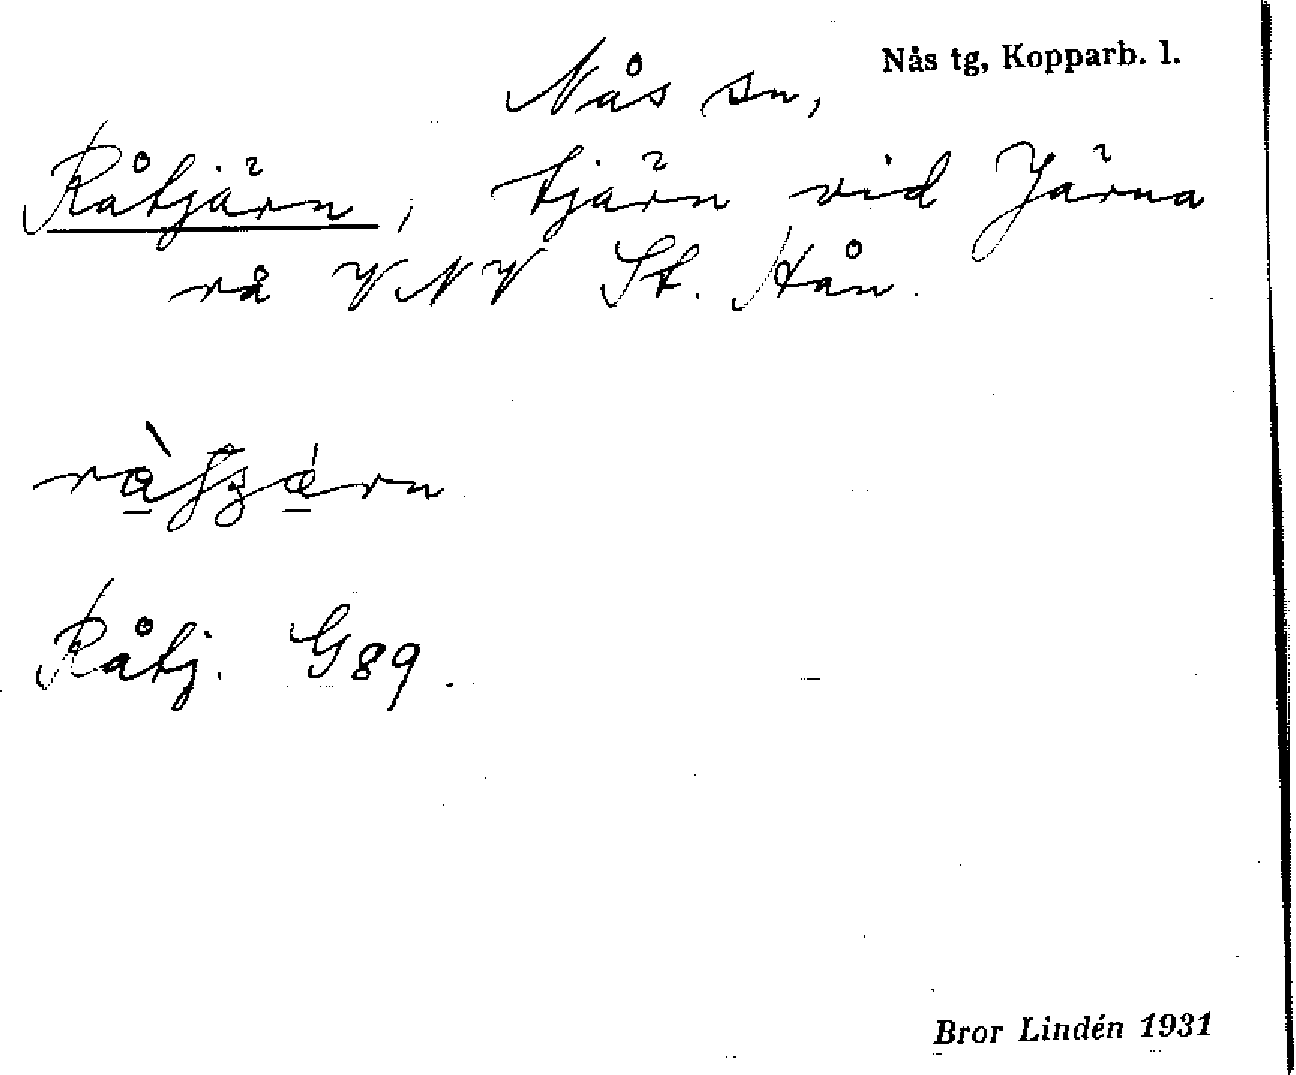 Nås tg, Kopparb. l.
Nås sn,
Råtjärn, tjärn vid Järna
rå VNV St. Hån.
Råtj. G89.
Bror Lindén 1931